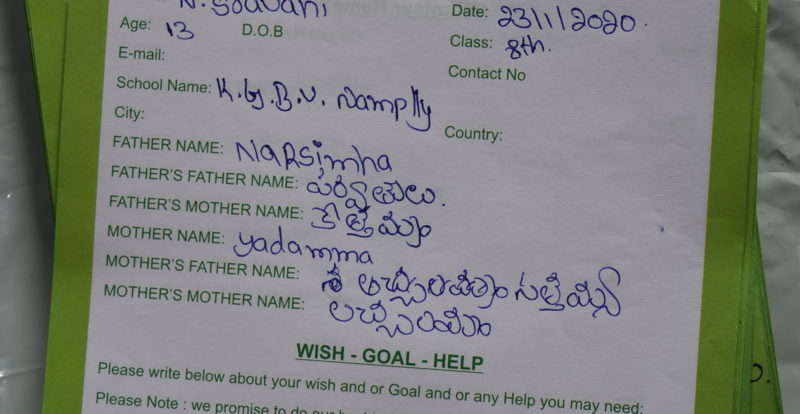 N. Sravani
Date: 23/1/2020.
Age: 13 D.O.B
Class: 8th.
E-mail:
Contact No
School Name: K.G.B.V. Namplly
City:
Country:
FATHER NAME: NARSimha
FATHER'S FATHER NAME: పర్వతులు.
FATHER'S MOTHER NAME:
MOTHER NAME: yadamma
MOTHER'S FATHER NAME:
MOTHER'S MOTHER NAME:
WISH - GOAL - HELP
Please write below about your wish and or Goal and or any Help you may need:
Please Note : we promise to do our